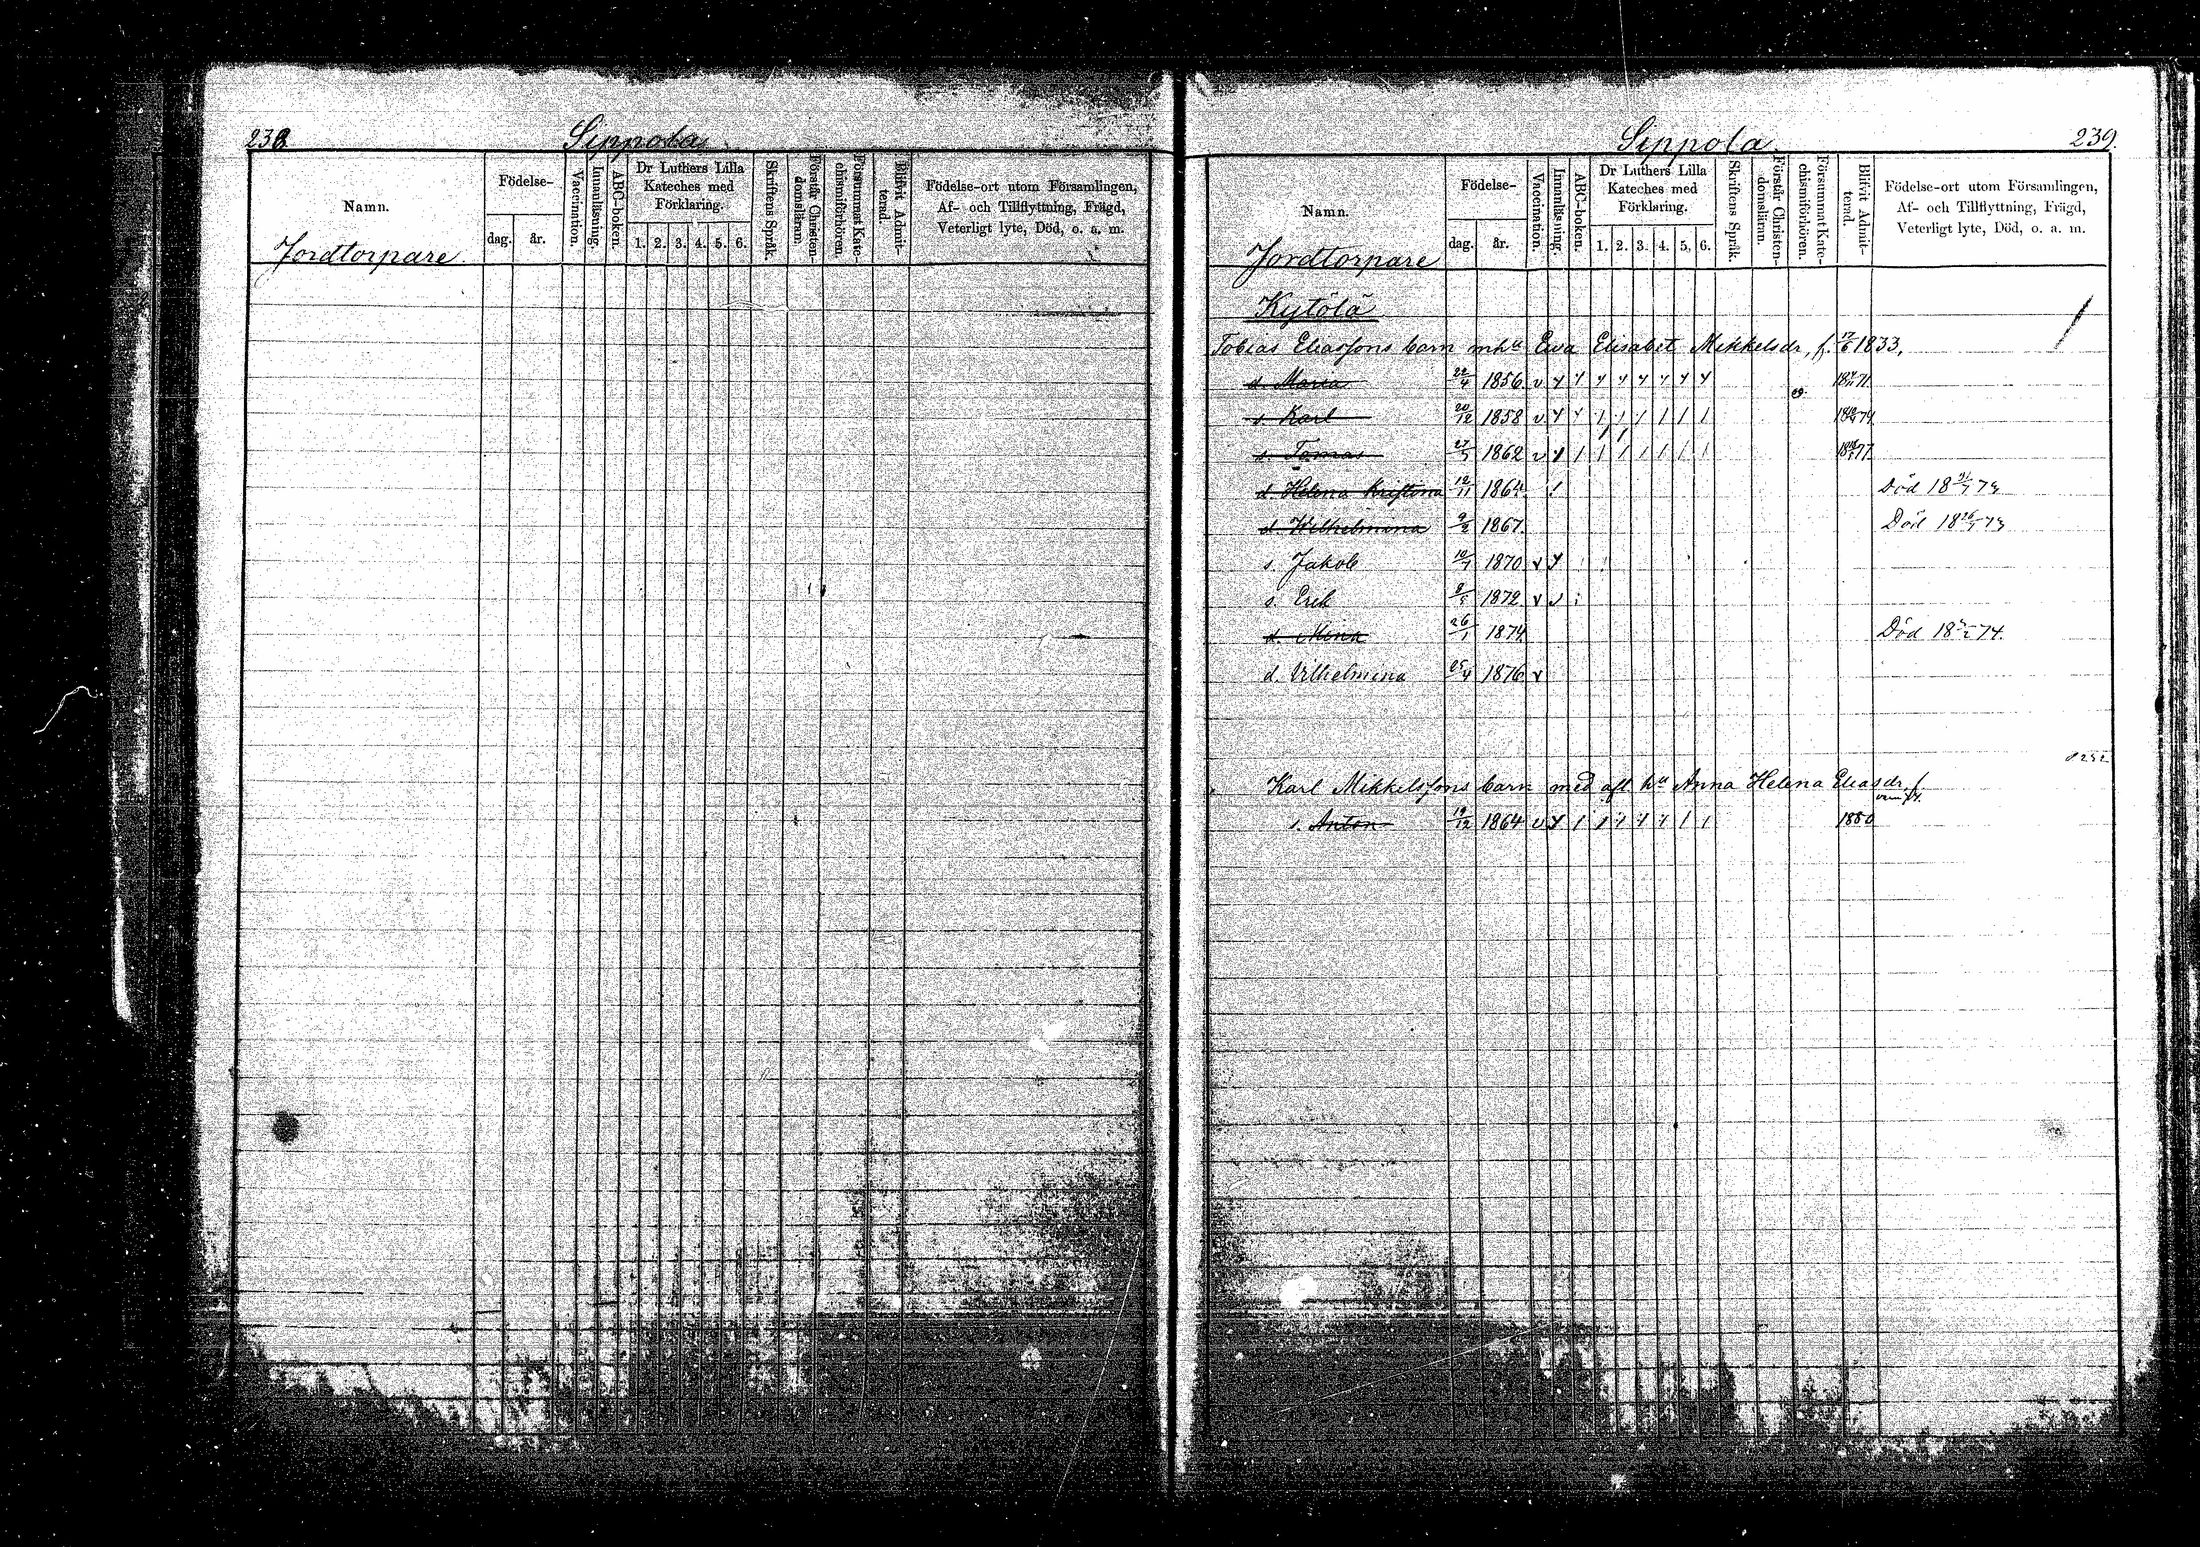 238 Sippola
Namn. Födelse- dag. år. Vaccination. Innanläsning. ABC-boken. Dr Luthers Lilla Kateches med Förklaring. 1. 2. 3. 4. 5. 6. Skriftens Språk. Förstår Christendomsläran. Försummat Katechismiförhören. Blifvit Admitterad. Födelse-ort utom Församlingen, Af- och Tillflyttning, Frägd, Veterligt lyte, Död, o. a. m.
Jordtorpare
Sippola 239.
Namn. Födelse- dag. år. Vaccination. Innanläsning. ABC-boken. Dr Luthers Lilla Kateches med Förklaring. 1. 2. 3. 4. 5. 6. Skriftens Språk. Förstår Christendomsläran. Försummat Katechismiförhören. Blifvit Admitterad. Födelse-ort utom Församlingen, Af- och Tillflyttning, Frägd, Veterligt lyte, Död, o. a. m.
Jordtorpare
Kytölä
Tobias Eliassons barn m hu Ewa Elisabet Mikkelsdr, f. 17/6 1833,
d. Maria 22/4 1856 v
s. Karl 20/12 1858 v
s. Tomas 27/5 1862 v
d. Helena Kristina 12/11 1864 Död
d. Wilhelmina 9/2 1867. Död 18 26/1 73
s. Jakob 10/7 1870 v
s. Erik 1872 v
d. Mina 26/1 1874 Död 74.
d. Vilhelmina 25/4 1876 v
Karl Mikkelssons barn med afl hu Anna Helena Eliasdr, f.
s. Anton 12/12 1864 v 1880